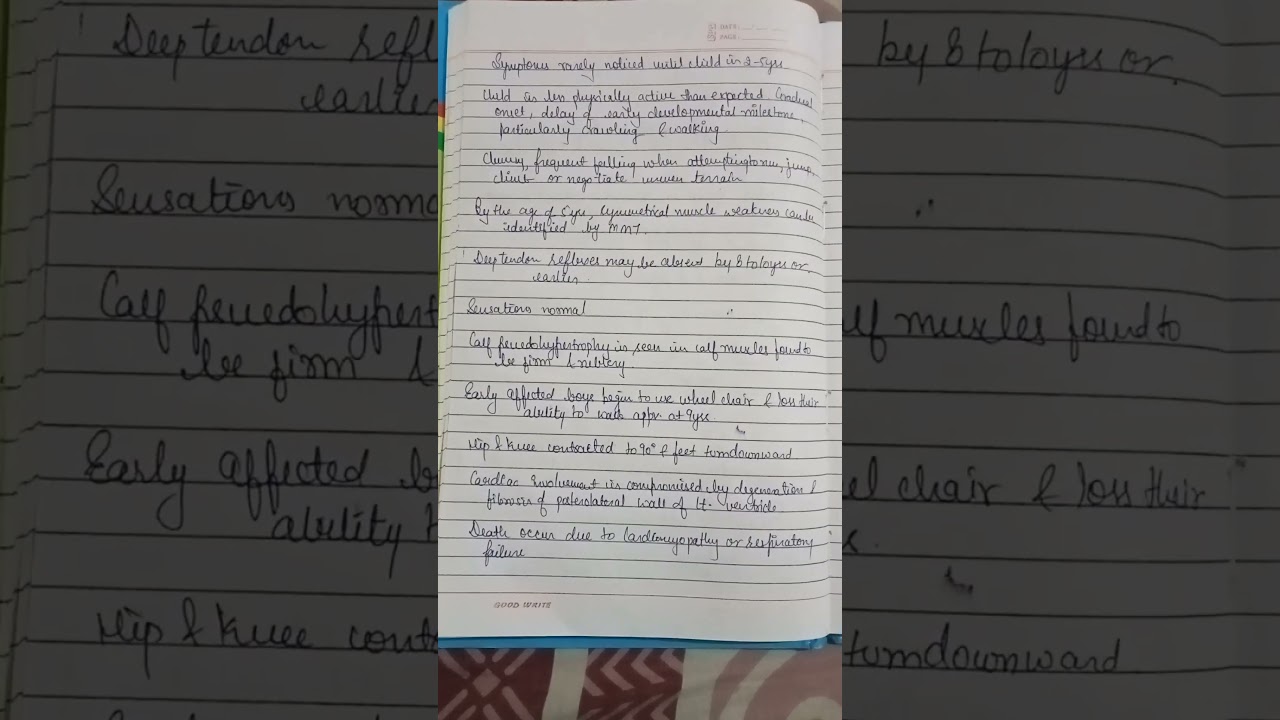 DATE:
PAGE:
Symptoms rarely noticed until child is 2-5yrs
Child is less physically active than expected. Gradual
onset, delay of early developmental milestone,
particularly crawling & walking.
Clumsy, frequent falling when attempting to run, jump,
climb or negotiate uneven terrain
By the age of 5yrs, symmetrical muscle weakness can be
identified by MMT.
Deep tendon reflexes may be absent by 8 to 10yrs or
earlier.
Sensations normal
Calf pseudohypertrophy is seen in calf muscles found to
be firm & rubbery.
Early affected boys begin to use wheel chair & loss their
ability to walk appr. at 9yrs.
Hip & knee contracted to 90° & feet turn downward
Cardiac involvement is compromised by degeneration &
fibrosis of posterolateral wall of lt. ventricle
Death occur due to cardiomyopathy or respiratory
failure
GOOD WRITE